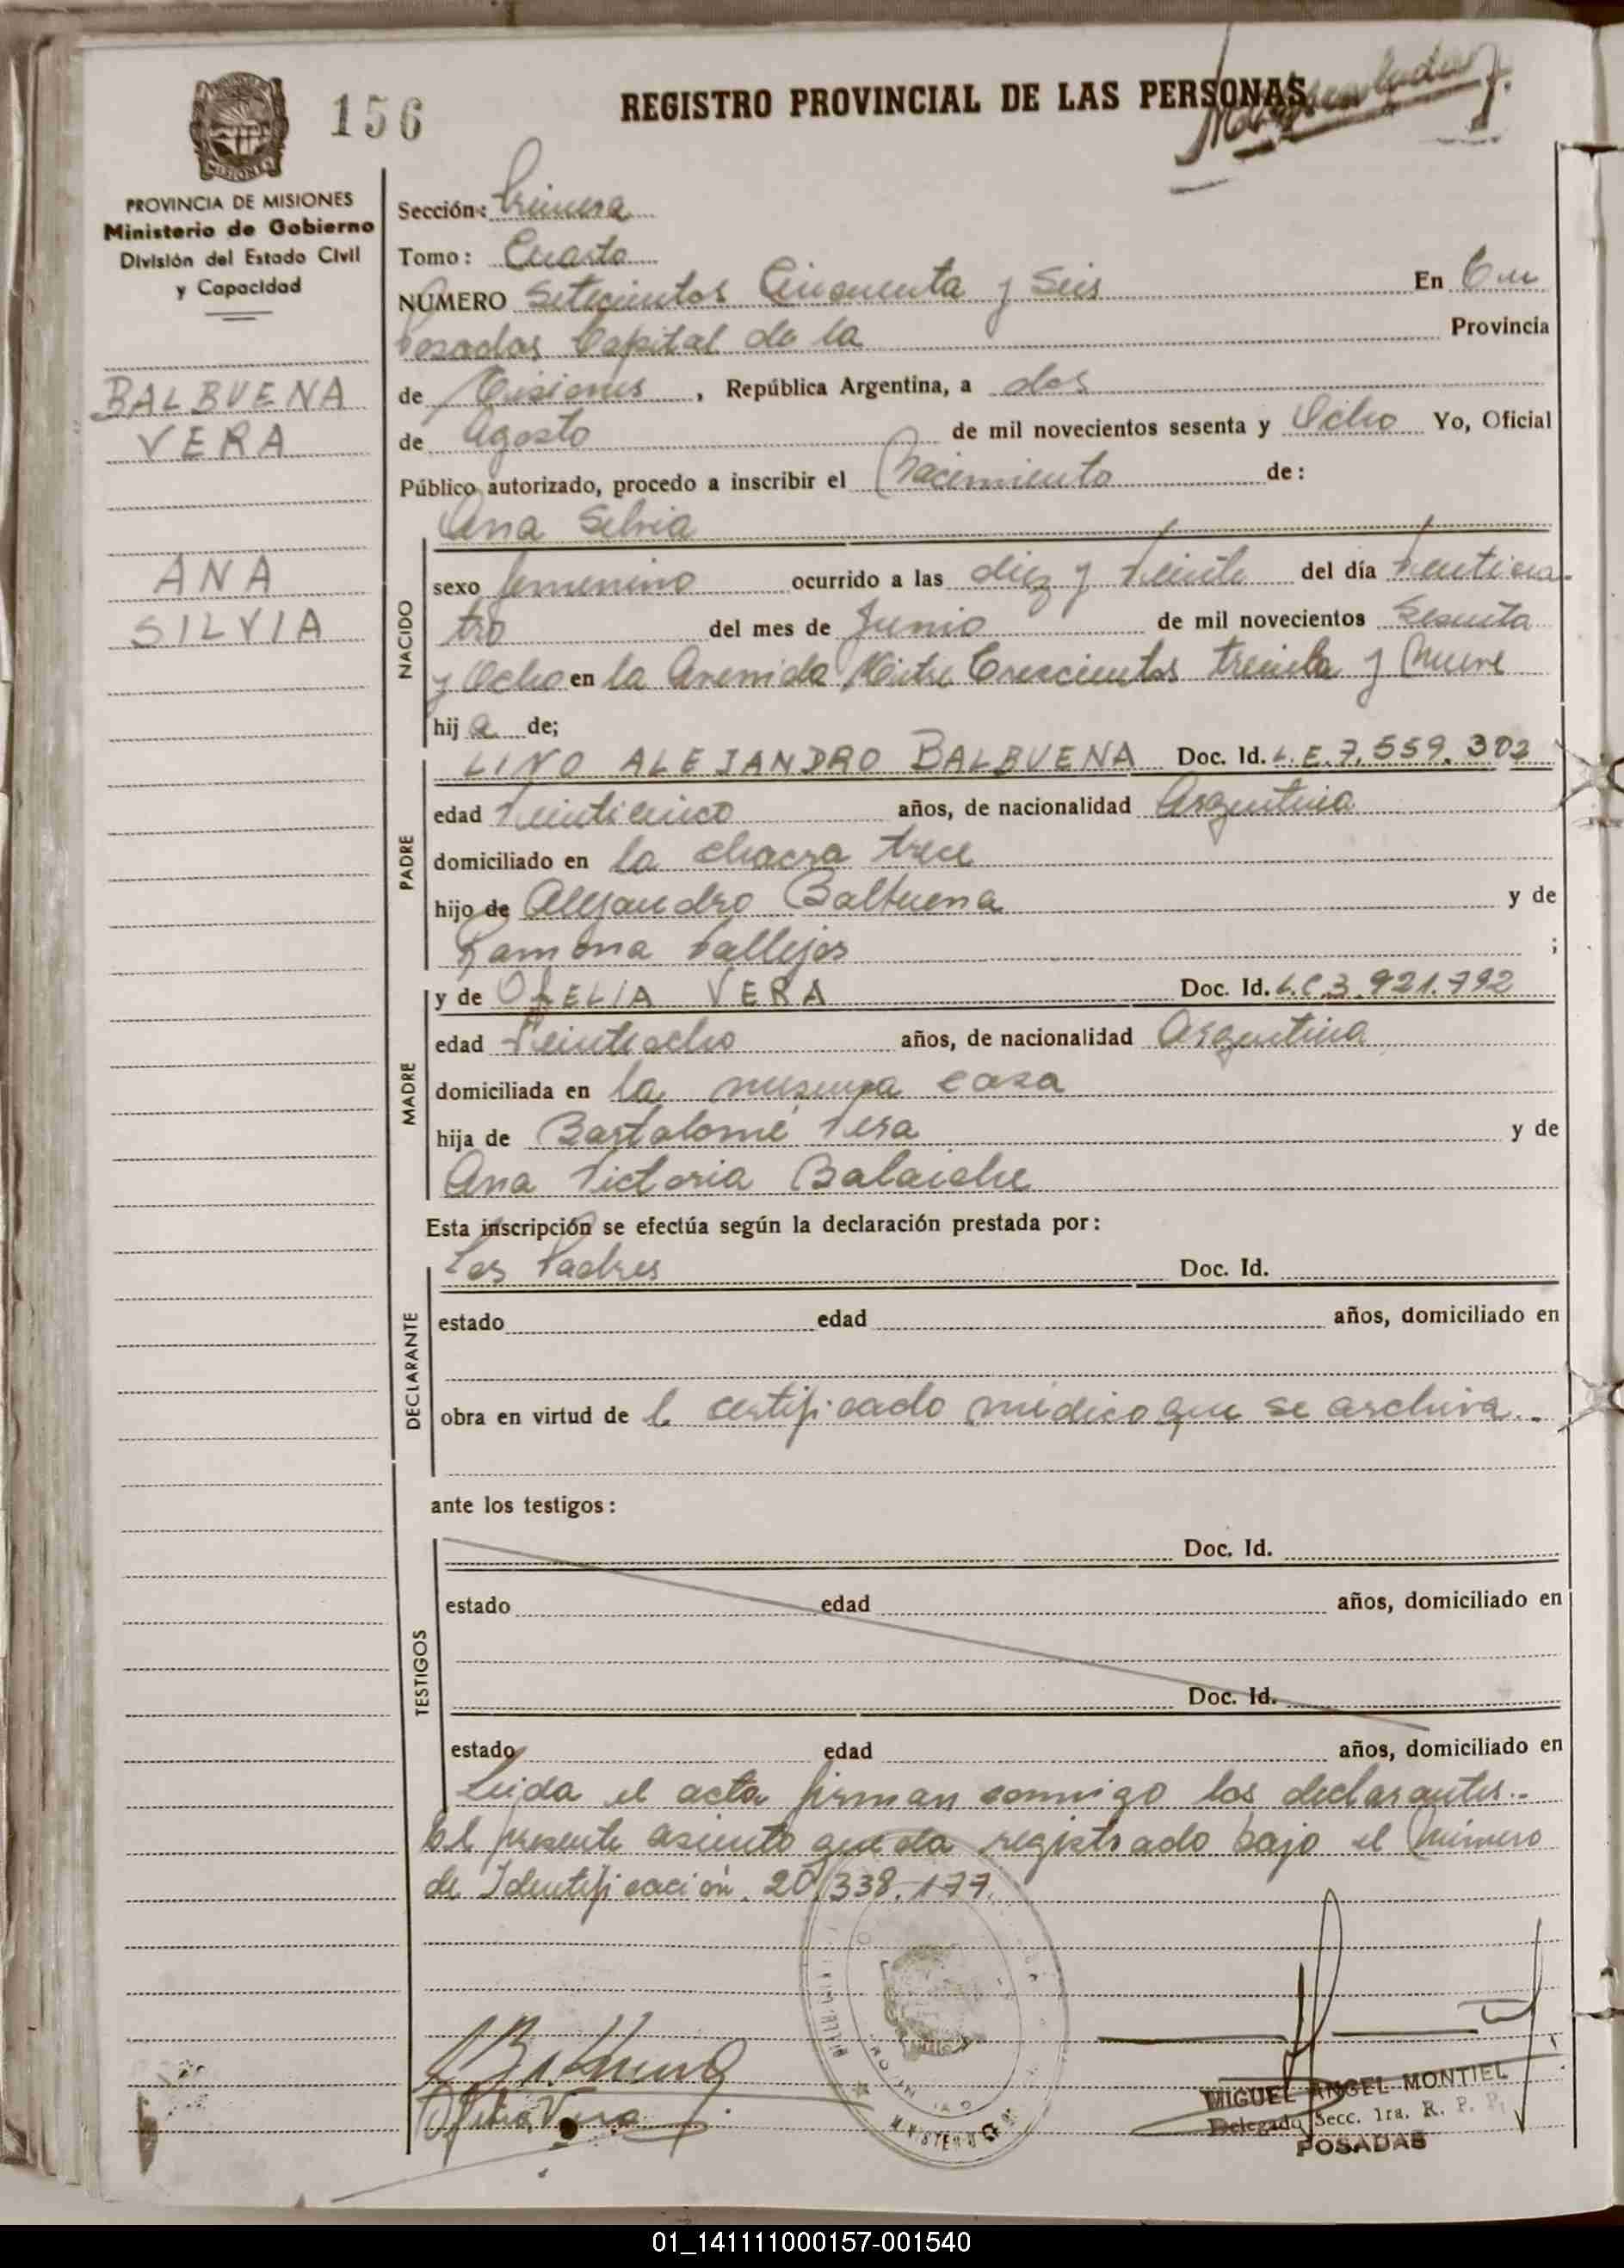 156
REGISTRO PROVINCIAL DE LAS PERSONAS
MISIONES
PROVINCIA DE MISIONES
Ministerio de Gobierno
División del Estado Civil
y Capacidad
BALBUENA
VERA
ANA
SILVIA
Sección: Primera
Tomo: Cuarto
NUMERO Setecientos Cincuenta y Seis En En
Posadas Capital de la Provincia
de Misiones, República Argentina, a dos
de Agosto de mil novecientos sesenta y Ocho Yo, Oficial
Público autorizado, procedo a inscribir el Nacimiento de:
Ana Silvia
NACIDO
sexo femenino ocurrido a las diez y veinte del día veinticua-
tro del mes de Junio de mil novecientos Sesenta
y Ocho en la Avenida Mitre Trescientos treinta y Nueve
hija de;
PADRE
LINO ALEJANDRO BALBUENA Doc. Id. L.E.7.559.302
edad Veinticinco años, de nacionalidad Argentina
domiciliado en la chacra trece
hijo de Alejandro Balbuena y de
Ramona Vallejos ;
MADRE
y de OFELIA VERA Doc. Id. L.C.3.921.792
edad Veintiocho años, de nacionalidad Argentina
domiciliada en la misma casa
hija de Bartolomé Vera y de
Ana Victoria
Esta inscripción se efectúa según la declaración prestada por:
DECLARANTE
Los Padres Doc. Id.
estado edad años, domiciliado en
obra en virtud de l certificado médico que se archiva.-
ante los testigos:
TESTIGOS
Doc. Id.
estado edad años, domiciliado en
Doc. Id.
estado edad años, domiciliado en
Leída el acta firman conmigo los declarantes.-
El presente asiento queda registrado bajo el Número
de Identificación. 20.338.177.
Ofelia Vera
MIGUEL ANGEL MONTIEL
Delegado Secc. 1ra. R. P. P.
POSADAS
01_141111000157-001540